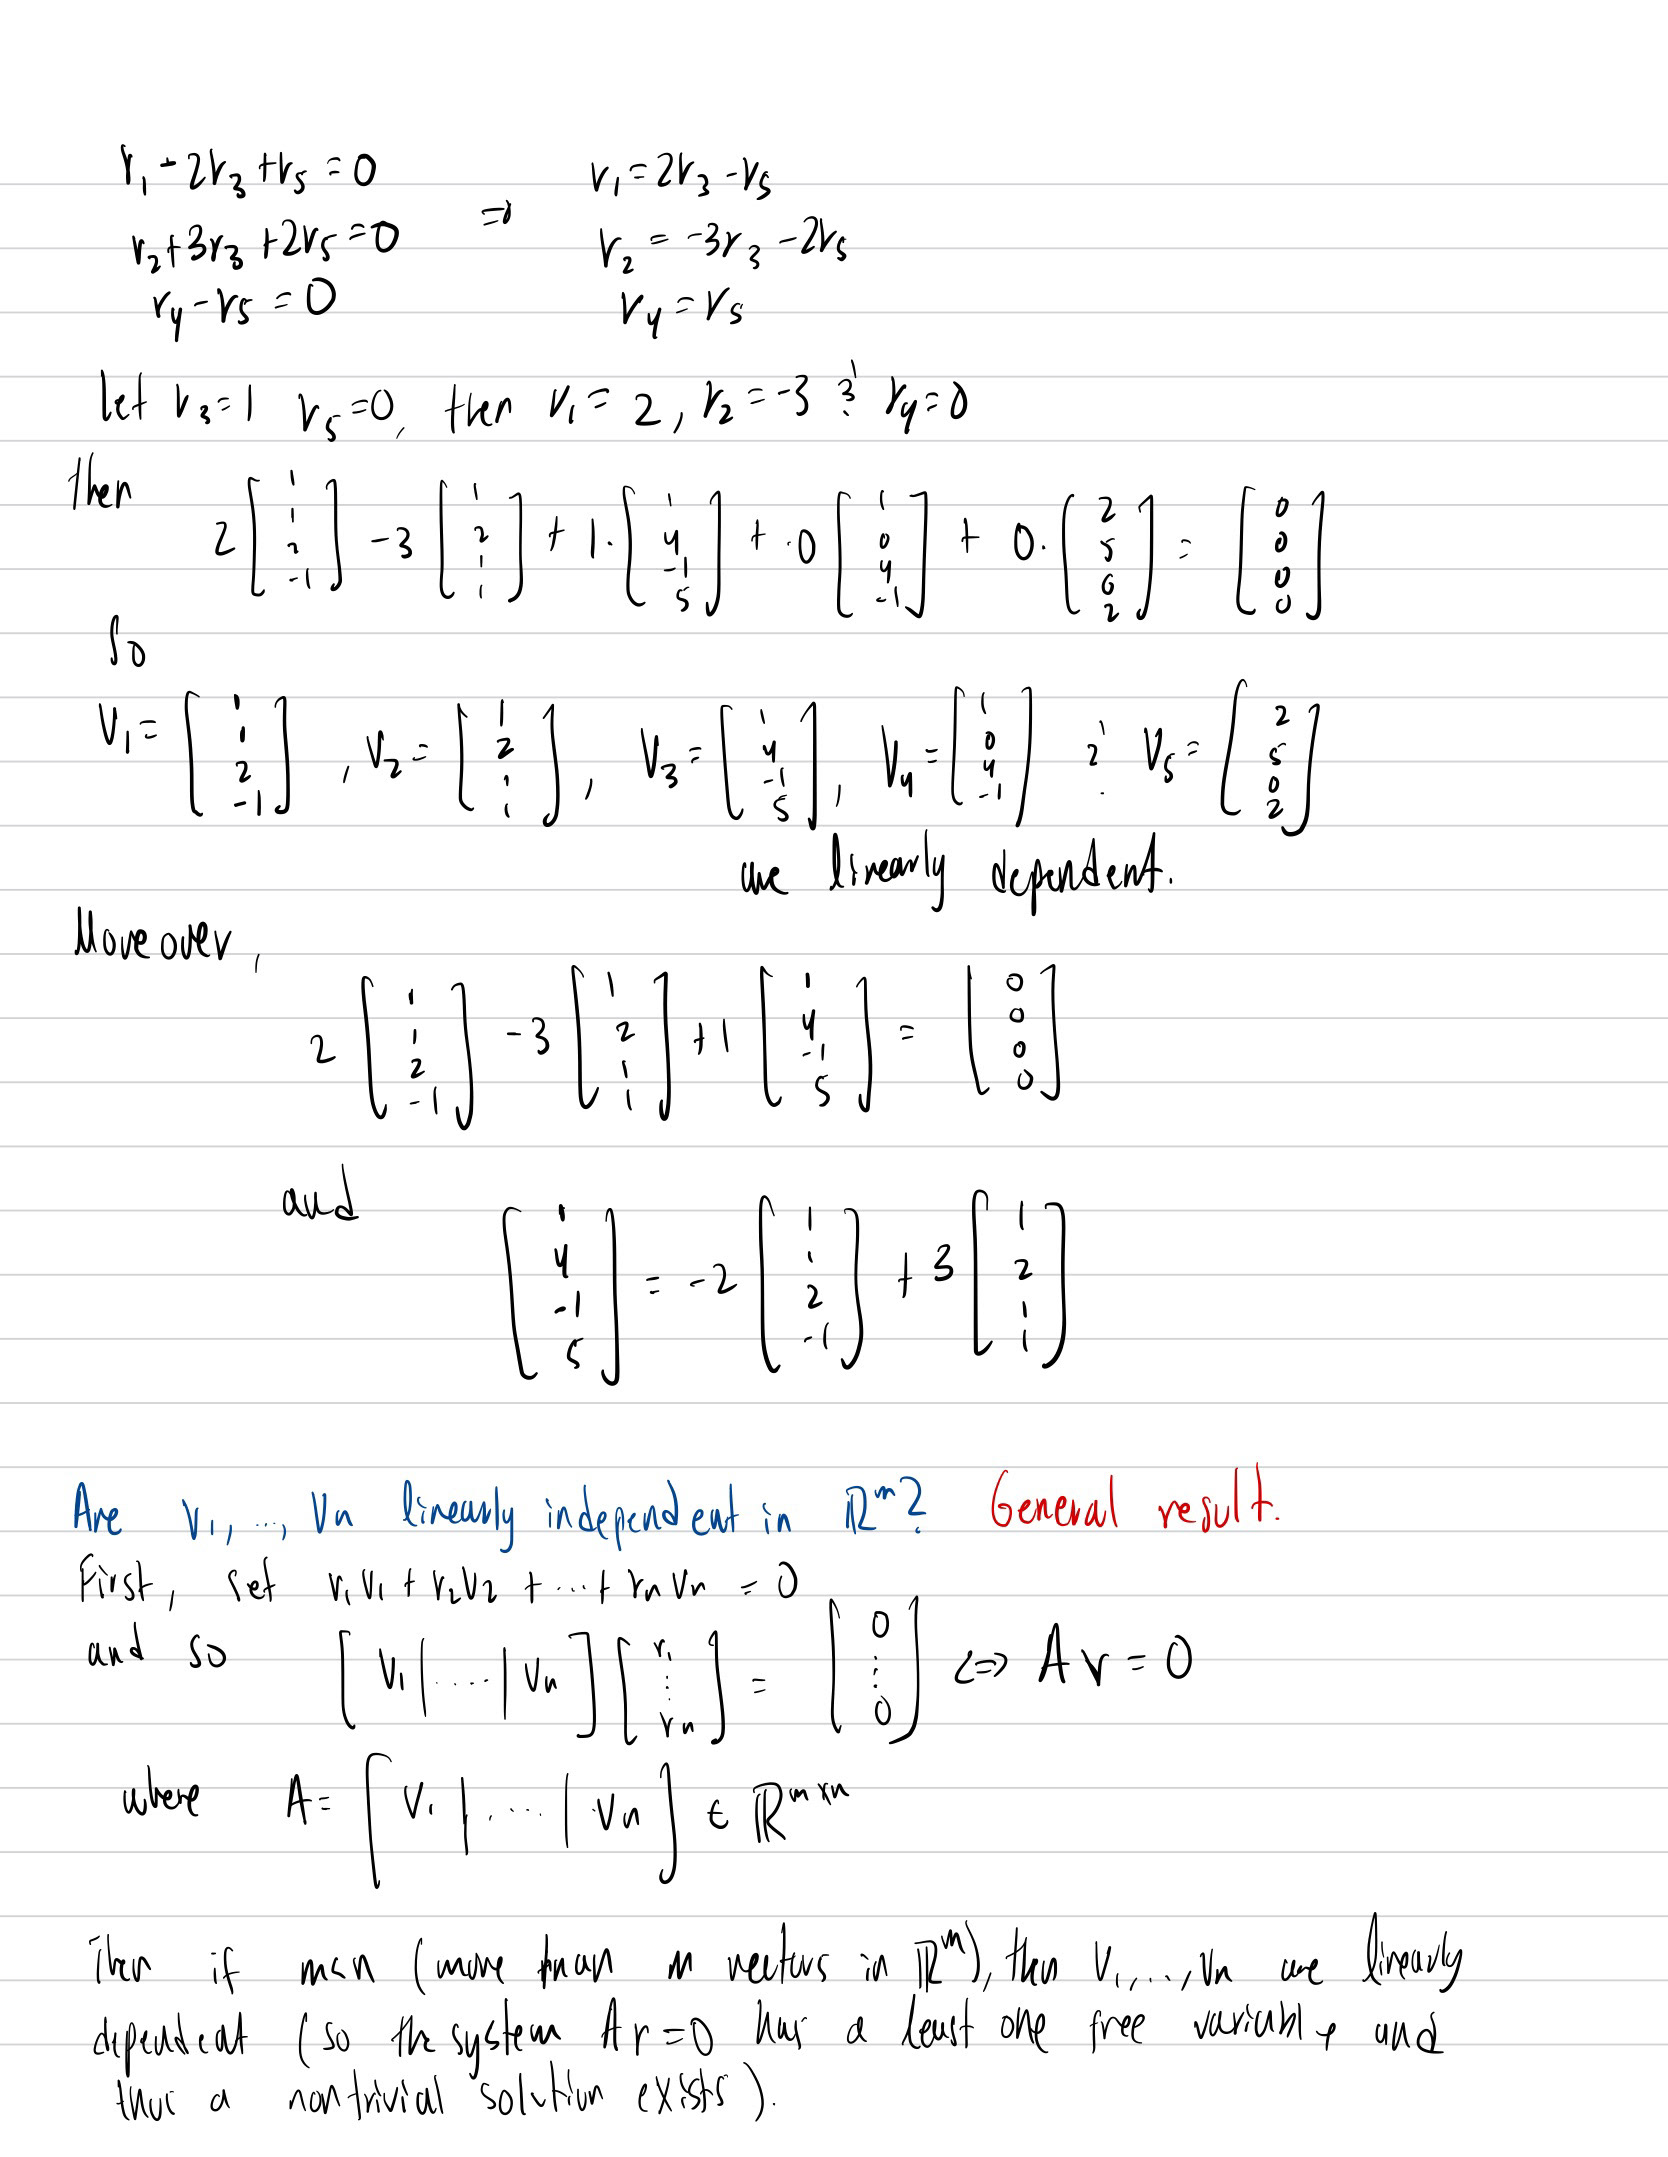 r₁ - 2r₃ + r₅ = 0 ⇒ r₁ = 2r₃ - r₅
r₂ + 3r₃ + 2r₅ = 0 r₂ = -3r₃ - 2r₅
r₄ - r₅ = 0 r₄ = r₅
let r₃ = 1 r₅ = 0, then r₁ = 2, r₂ = -3 & r₄ = 0
then 2[1 1 2 -1] - 3[1 2 1 1] + 1·[1 4 -1 5] + ·0[1 0 4 -1] + 0·[2 5 0 2] = [0 0 0 0]
So
V₁ = [1 1 2 -1], V₂ = [1 2 1 1], V₃ = [1 4 -1 5], V₄ = [1 0 4 -1] & V₅ = [2 5 0 2]
are linearly dependent.
Moreover,
2[1 1 2 -1] - 3[1 2 1 1] + 1[1 4 -1 5] = [0 0 0 0]
and
[1 4 -1 5] = -2[1 1 2 -1] + 3[1 2 1 1]
Are V₁, ..., Vn linearly independent in ℝᵐ? General result.
First, set r₁V₁ + r₂V₂ + ... + rnVn = 0
and so [V₁|.....|Vn][r₁ ⋮ rn] = [0 ⋮ 0] ⟺ Ar = 0
where A = [V₁|.....|Vn] ∈ ℝᵐˣⁿ
Then if m<n (more than m vectors in ℝᵐ), then V₁, ..., Vn are linearly
dependent (so the system Ar = 0 has a least one free variable, and
thus a nontrivial solution exists).